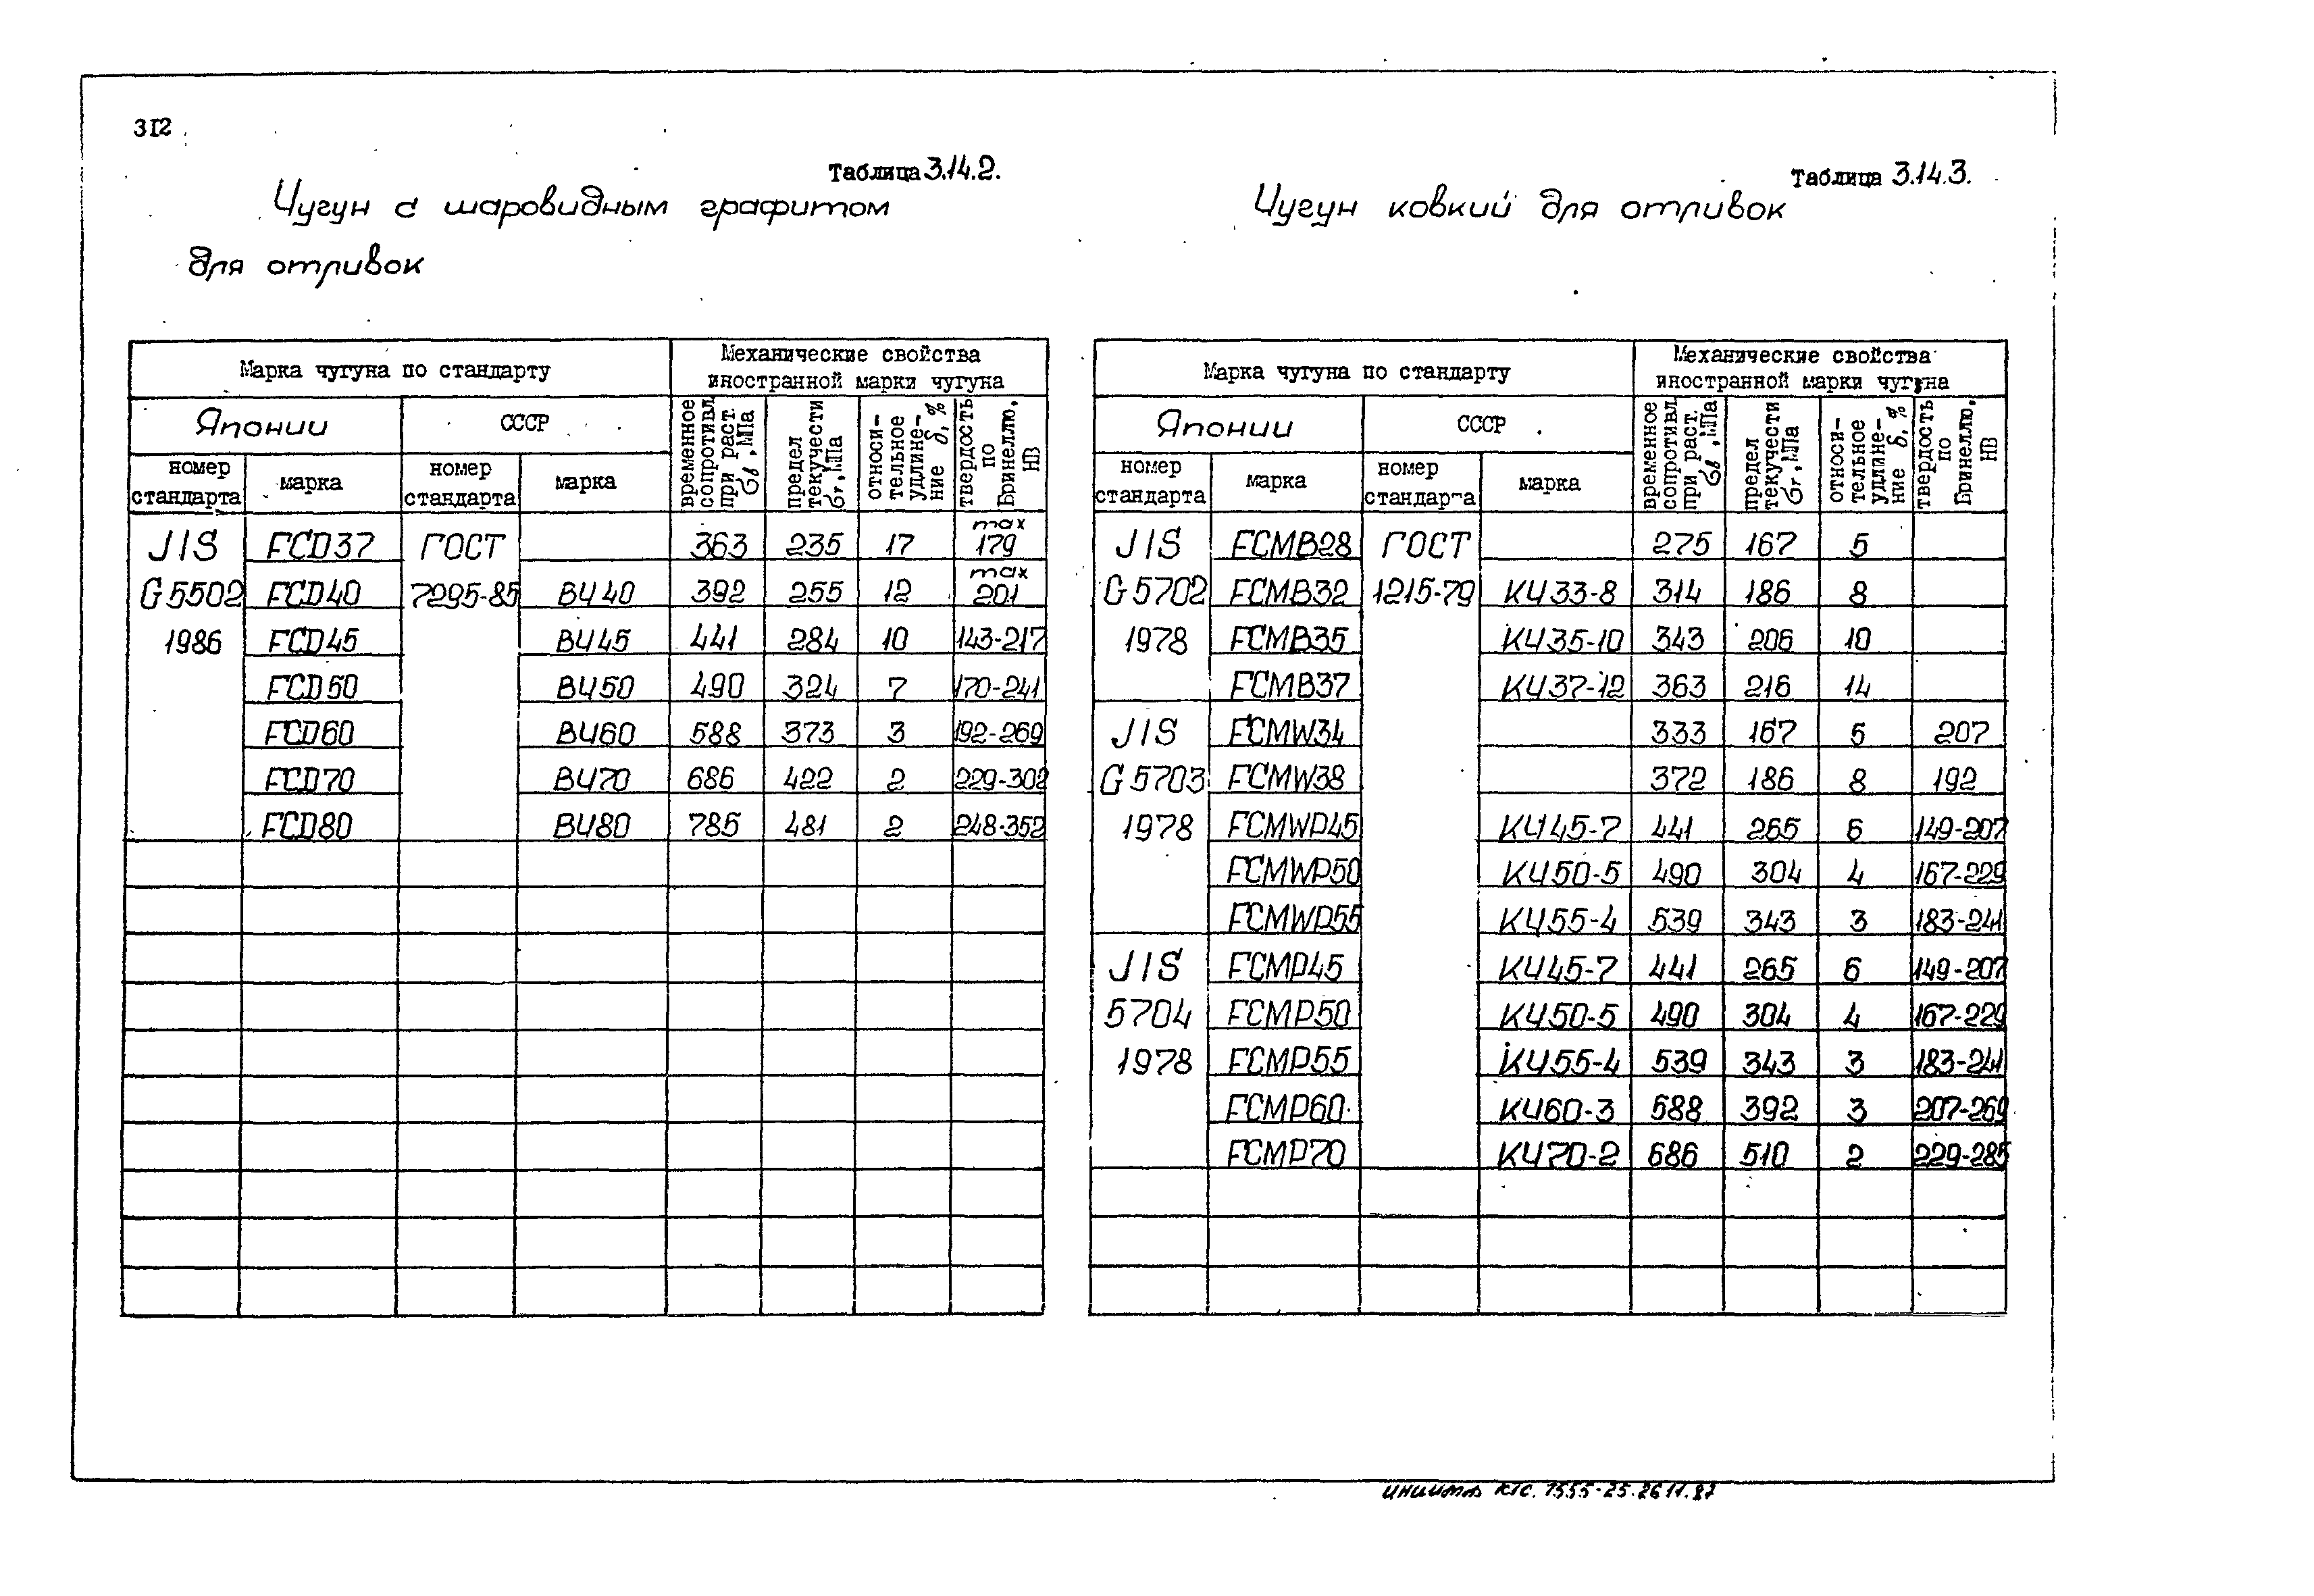 312
Таблица 3.14.2.
Чугун с шаровидным графитом
для отливок
Марка чугуна по стандарту
Механические свойства
иностранной марки чугуна
Японии
СССР
номер
стандарта
марка
номер
стандарта
марка
временное
сопротивл.
при раст.
бв, МПа
предел
текучести
бт, МПа
относи-
тельное
удлине-
ние δ, %
твердость
по
Бринеллю,
НВ
JIS FCD37 ГОСТ 363 235 17 max 179
G5502 FCD40 7295-85 ВЧ40 392 255 12 max 201
1986 FCD45 ВЧ45 441 284 10 143-217
FCD50 ВЧ50 490 324 7 170-241
FCD60 ВЧ60 588 373 3 192-269
FCD70 ВЧ70 686 422 2 229-302
FCD80 ВЧ80 785 481 2 248-352
Таблица 3.14.3.
Чугун ковкий для отливок
Марка чугуна по стандарту
Механические свойства
иностранной марки чугуна
Японии
СССР
номер
стандарта
марка
номер
стандарта
марка
временное
сопротивл.
при раст.
бв, МПа
предел
текучести
бт, МПа
относи-
тельное
удлине-
ние δ, %
твердость
по
Бринеллю,
НВ
JIS FCMB28 ГОСТ 275 167 5
G5702 FCMB32 1215-79 КЧ33-8 314 186 8
1978 FCMB35 КЧ35-10 343 206 10
FCMB37 КЧ37-12 363 216 14
JIS FCMW34 333 167 5 207
G5703 FCMW38 372 186 8 192
1978 FCMWP45 КЧ45-7 441 265 6 149-207
FCMWP50 КЧ50-5 490 304 4 167-229
FCMWP55 КЧ55-4 539 343 3 183-241
JIS FCMP45 КЧ45-7 441 265 6 149-207
5704 FCMP50 КЧ50-5 490 304 4 167-229
1978 FCMP55 КЧ55-4 539 343 3 183-241
FCMP60 КЧ60-3 588 392 3 207-269
FCMP70 КЧ70-2 686 510 2 229-285
26.11.87